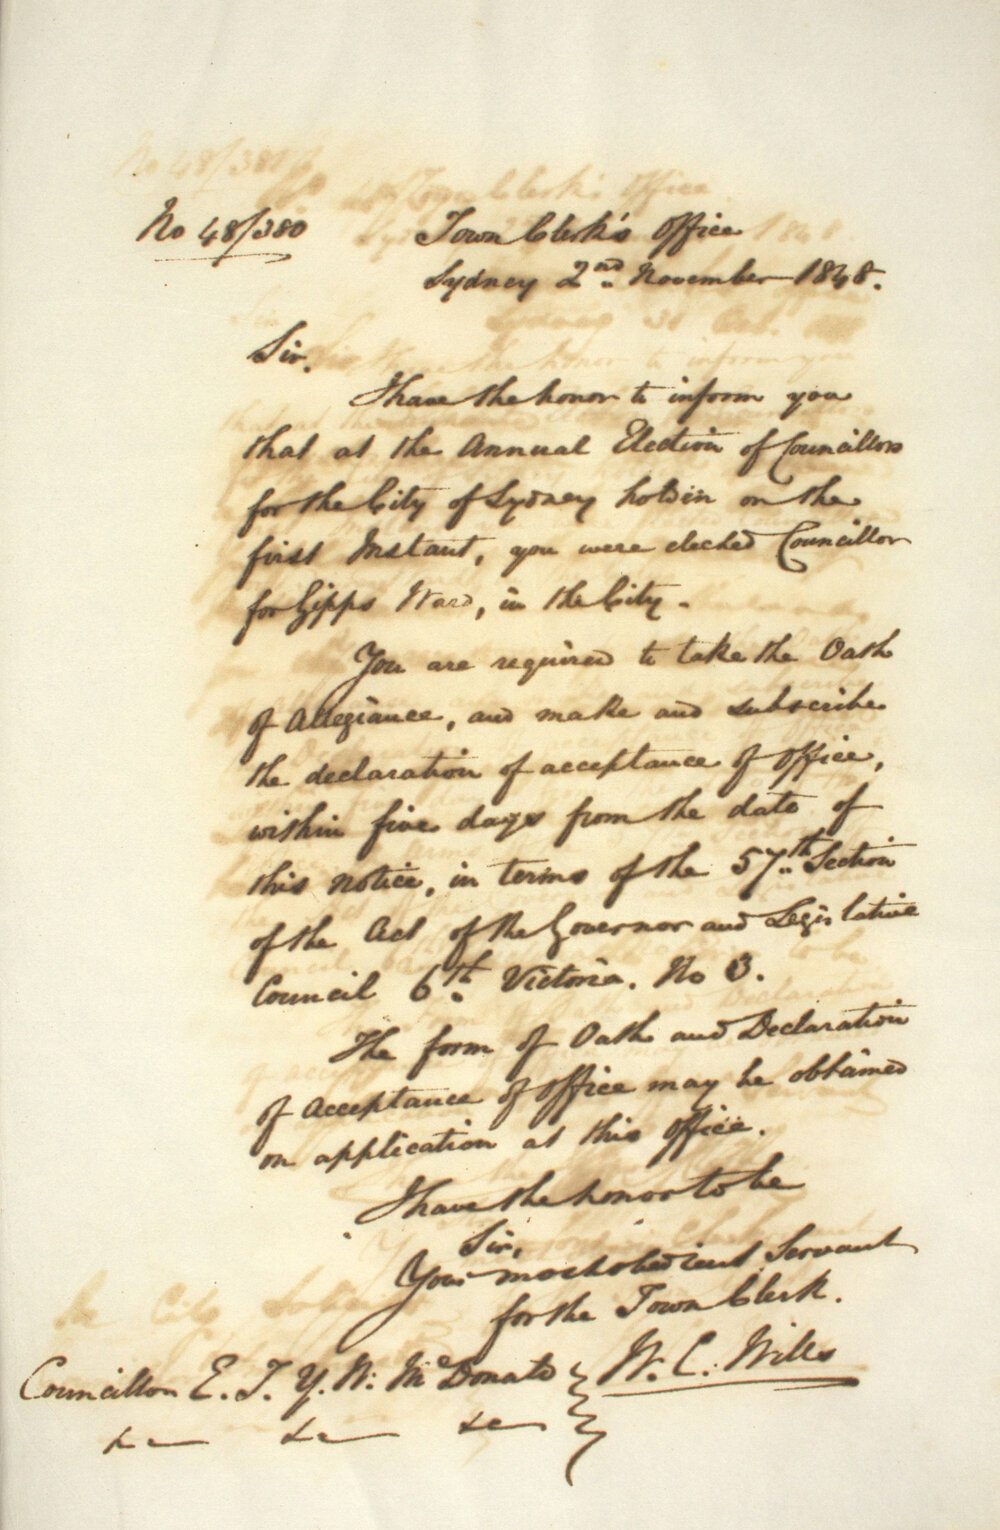 No 48/380
Town Clerk's Office
Sydney 2nd. November 1848.
Sir.
I have the honor to inform you
that at the Annual Election of Councillors
for the City of Sydney holden on the
first Instant, you were elected Councillor
for Gipps Ward, in the City.
You are required to take the Oath
of Allegiance, and make and subscribe
the declaration of acceptance of Office,
within five days from the date of
this notice, in terms of the 57th. Section
of the Act of the Governor and Legislative
Council 6th. Victoria. No 3.
The form of Oath and Declaration
of Acceptance of Office may be obtained
on application at this Office.
I have the honor to be
Sir,
Your most obedient Servant
for the Town Clerk.
W. C. Wills
Councillor E. T. Y. W. McDonald
&c &c &c